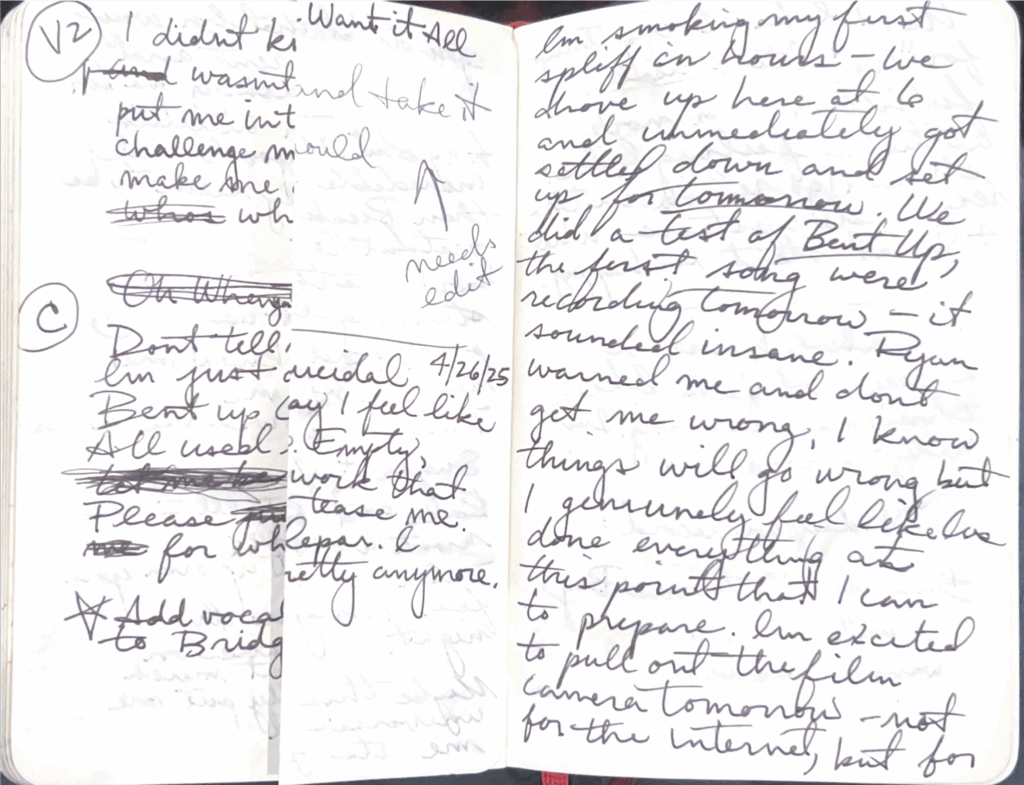 V2
I didnt ki
and wasnt
put me int
challenge m
make me
Whos wh
Oh Wheny
C
Dont tell
Im just
Bent up
All used
Please
for wh
Add voca
to Bridg
Want it All
and take it
ould
needs
edit
4/26/25
icidal
ay I feel like
Empty,
work that
tease me.
epar. I
retty anymore.
Im smoking my first
spliff in hours – We
drove up here at 6
and immediately got
settled down and set
up for tomorrow. We
did a test of Bent Up,
the first song were
recording tomorrow – it
sounded insane. Ryan
warned me and dont
get me wrong, I know
things will go wrong but
I genuinely feel like Ive
done everything at
this point that I can
to prepare. Im excited
to pull out the film
camera tomorrow – not
for the internet, but for